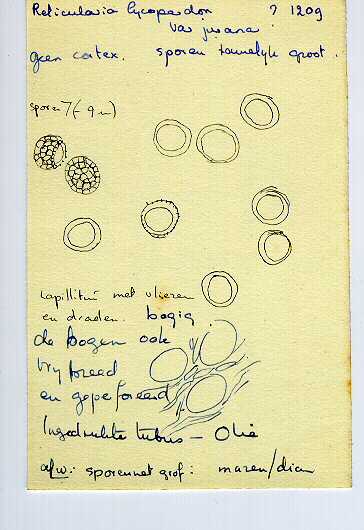 Reticularia lycoperdon ? 1209
Var jurana
geen cortex. sporen tamelijk groot.
sporen 7(- 9 u)
Capillitium met vliezen
en draden. bogig
de bogen ook
vrij breed
en geperforeerd
Ingedrukte tubus - Olie
afw: sporennet grof: mazen/diam